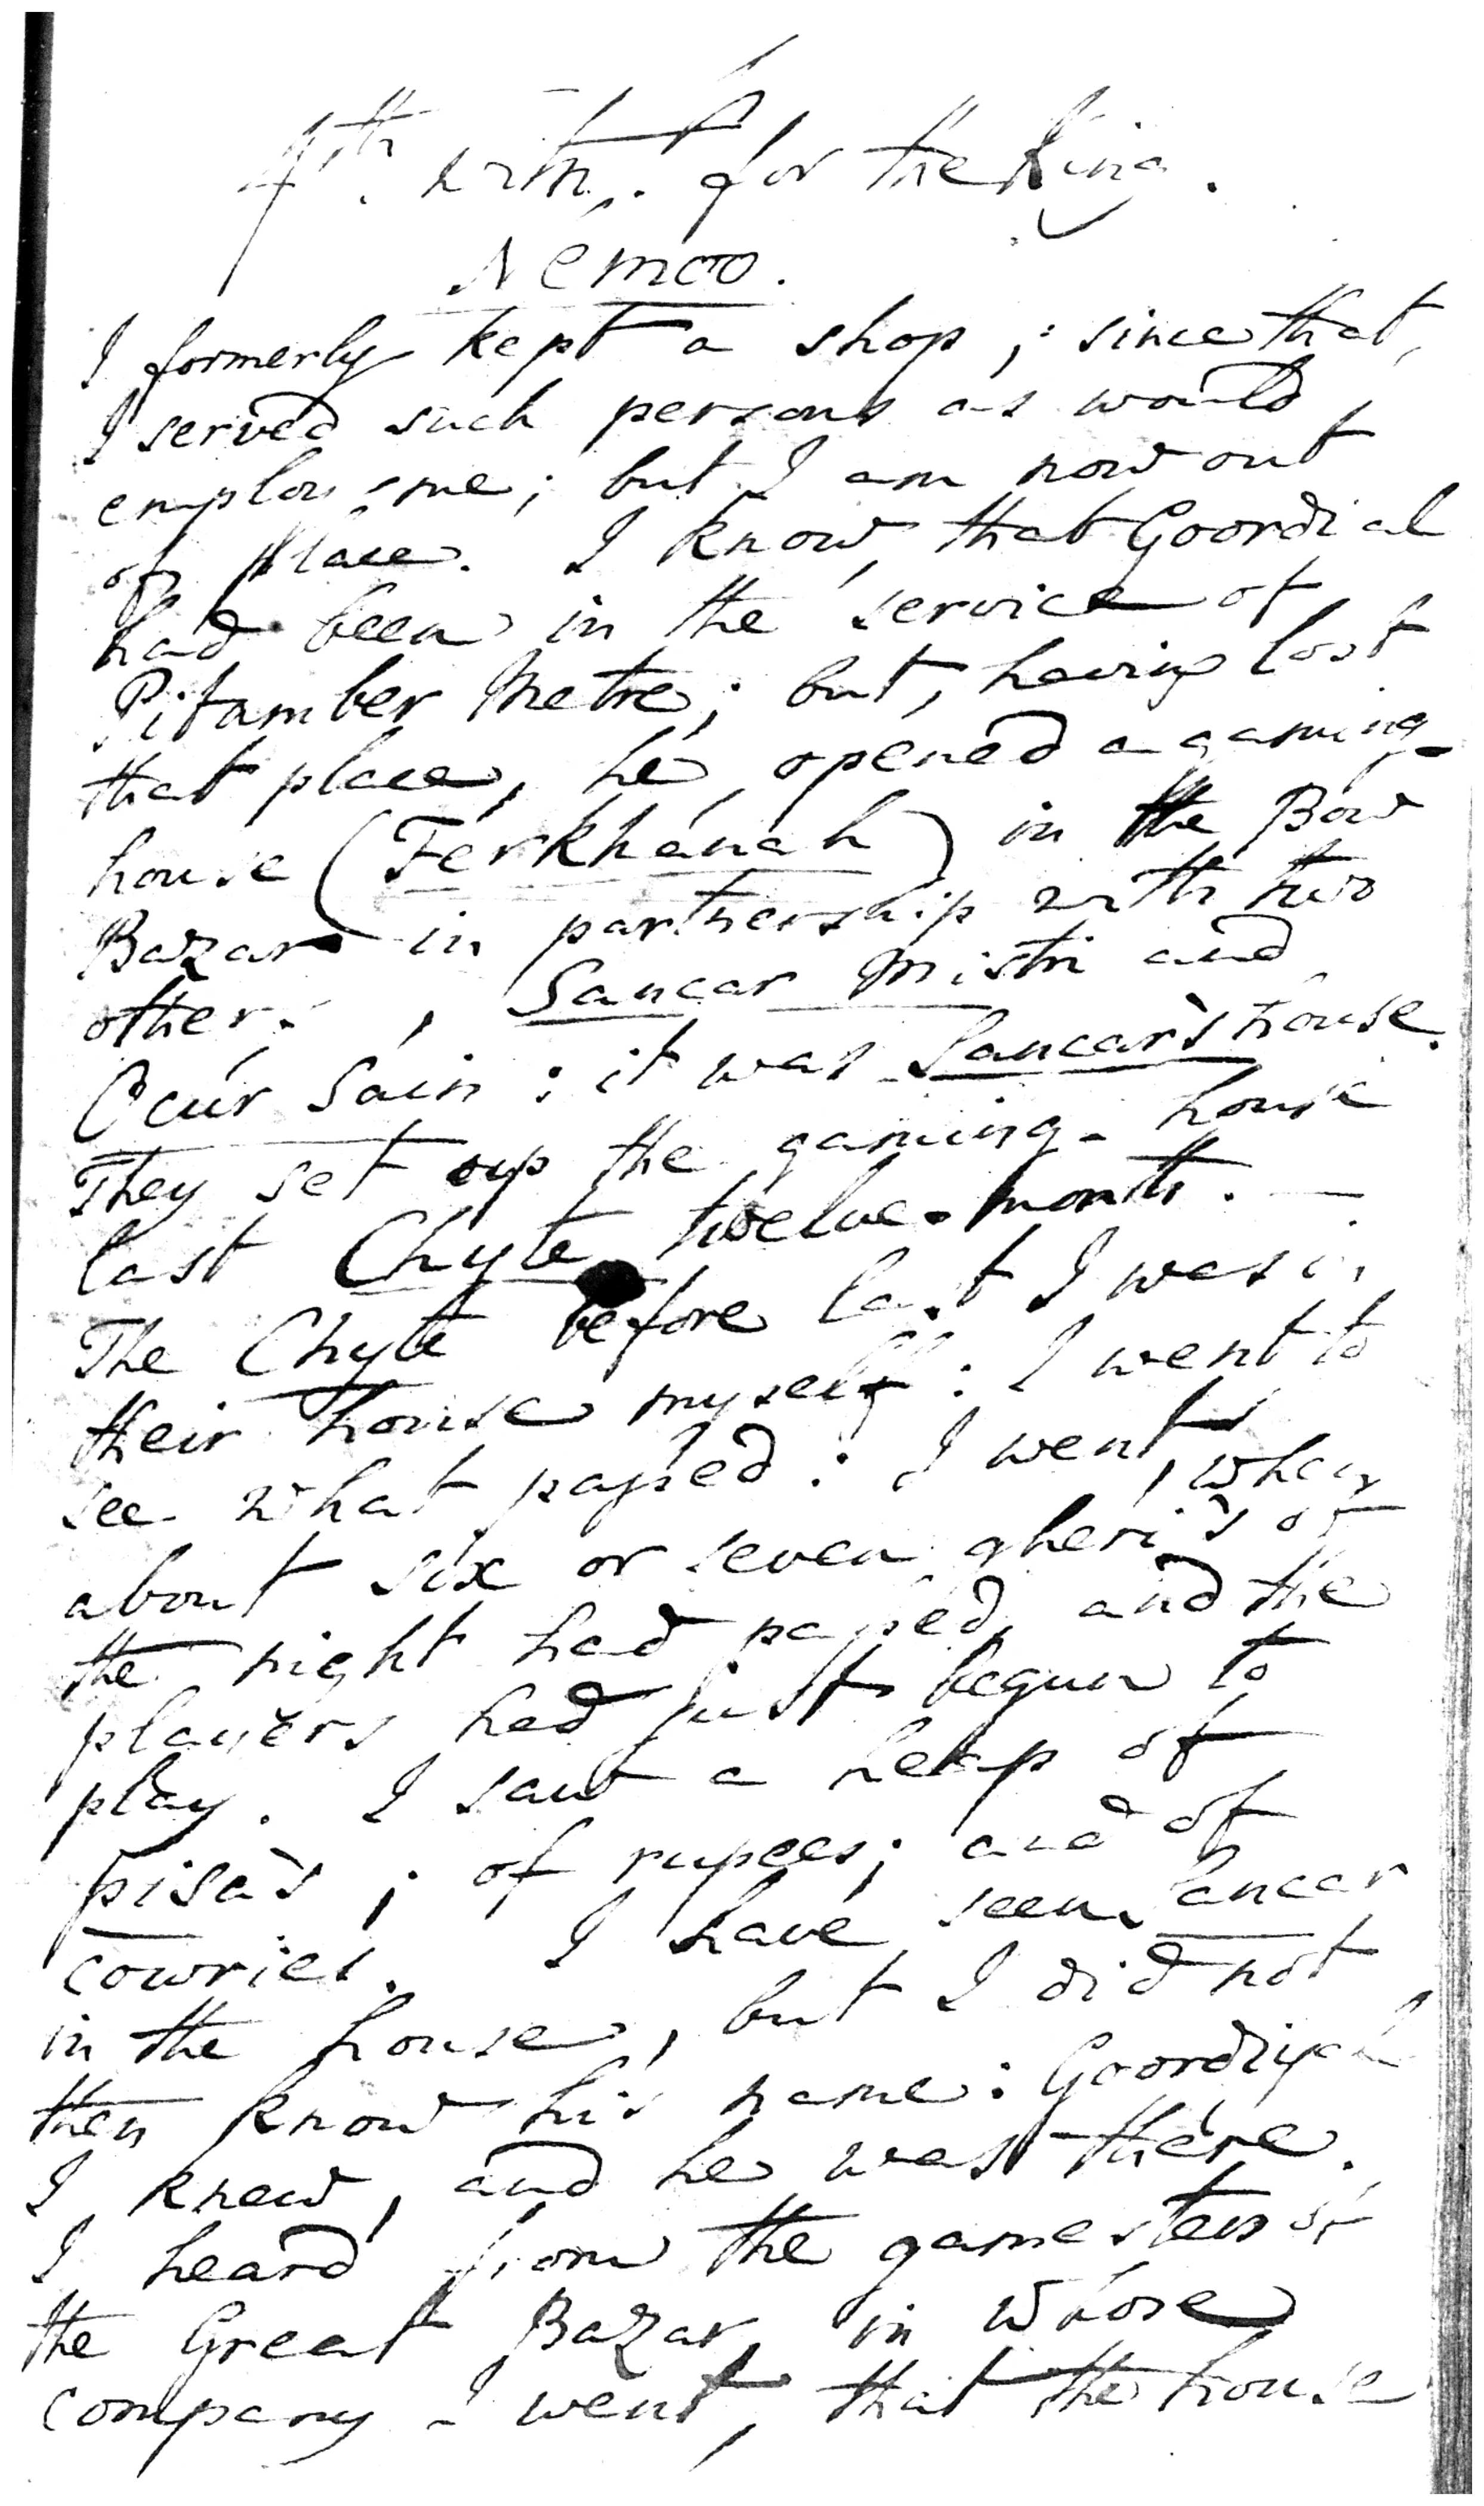 4th. witn. for the King.
Nemoo.
I formerly kept a shop; since that,
I served such persons as would
employ me; but I am now out
of place. I know, that Goordial
had been in the service of
Pitamber Metre; but, having lost
that place, he opened a gaming-
house (Ferkhánah) in the Bow
Bazar in partnership with two
others, Sancar Mistri and
Ocúr Sain: it was Sancar's house.
They set up the gaming-house
last Chyte twelve-month. —
The Chyte before last I was in
their house myself: I went to
see what passed: I went, when
about six or seven gheri's of
the night had passed, and the
players had just begun to
play. I saw a heap of
pisa's; of rupees; and of
cowries. I have seen Sancar
in the house, but I did not
then know his name: Goordiyal
I knew, and he was there.
I heard from the gamesters of
the Great Bazar, in whose
company I went, that the house